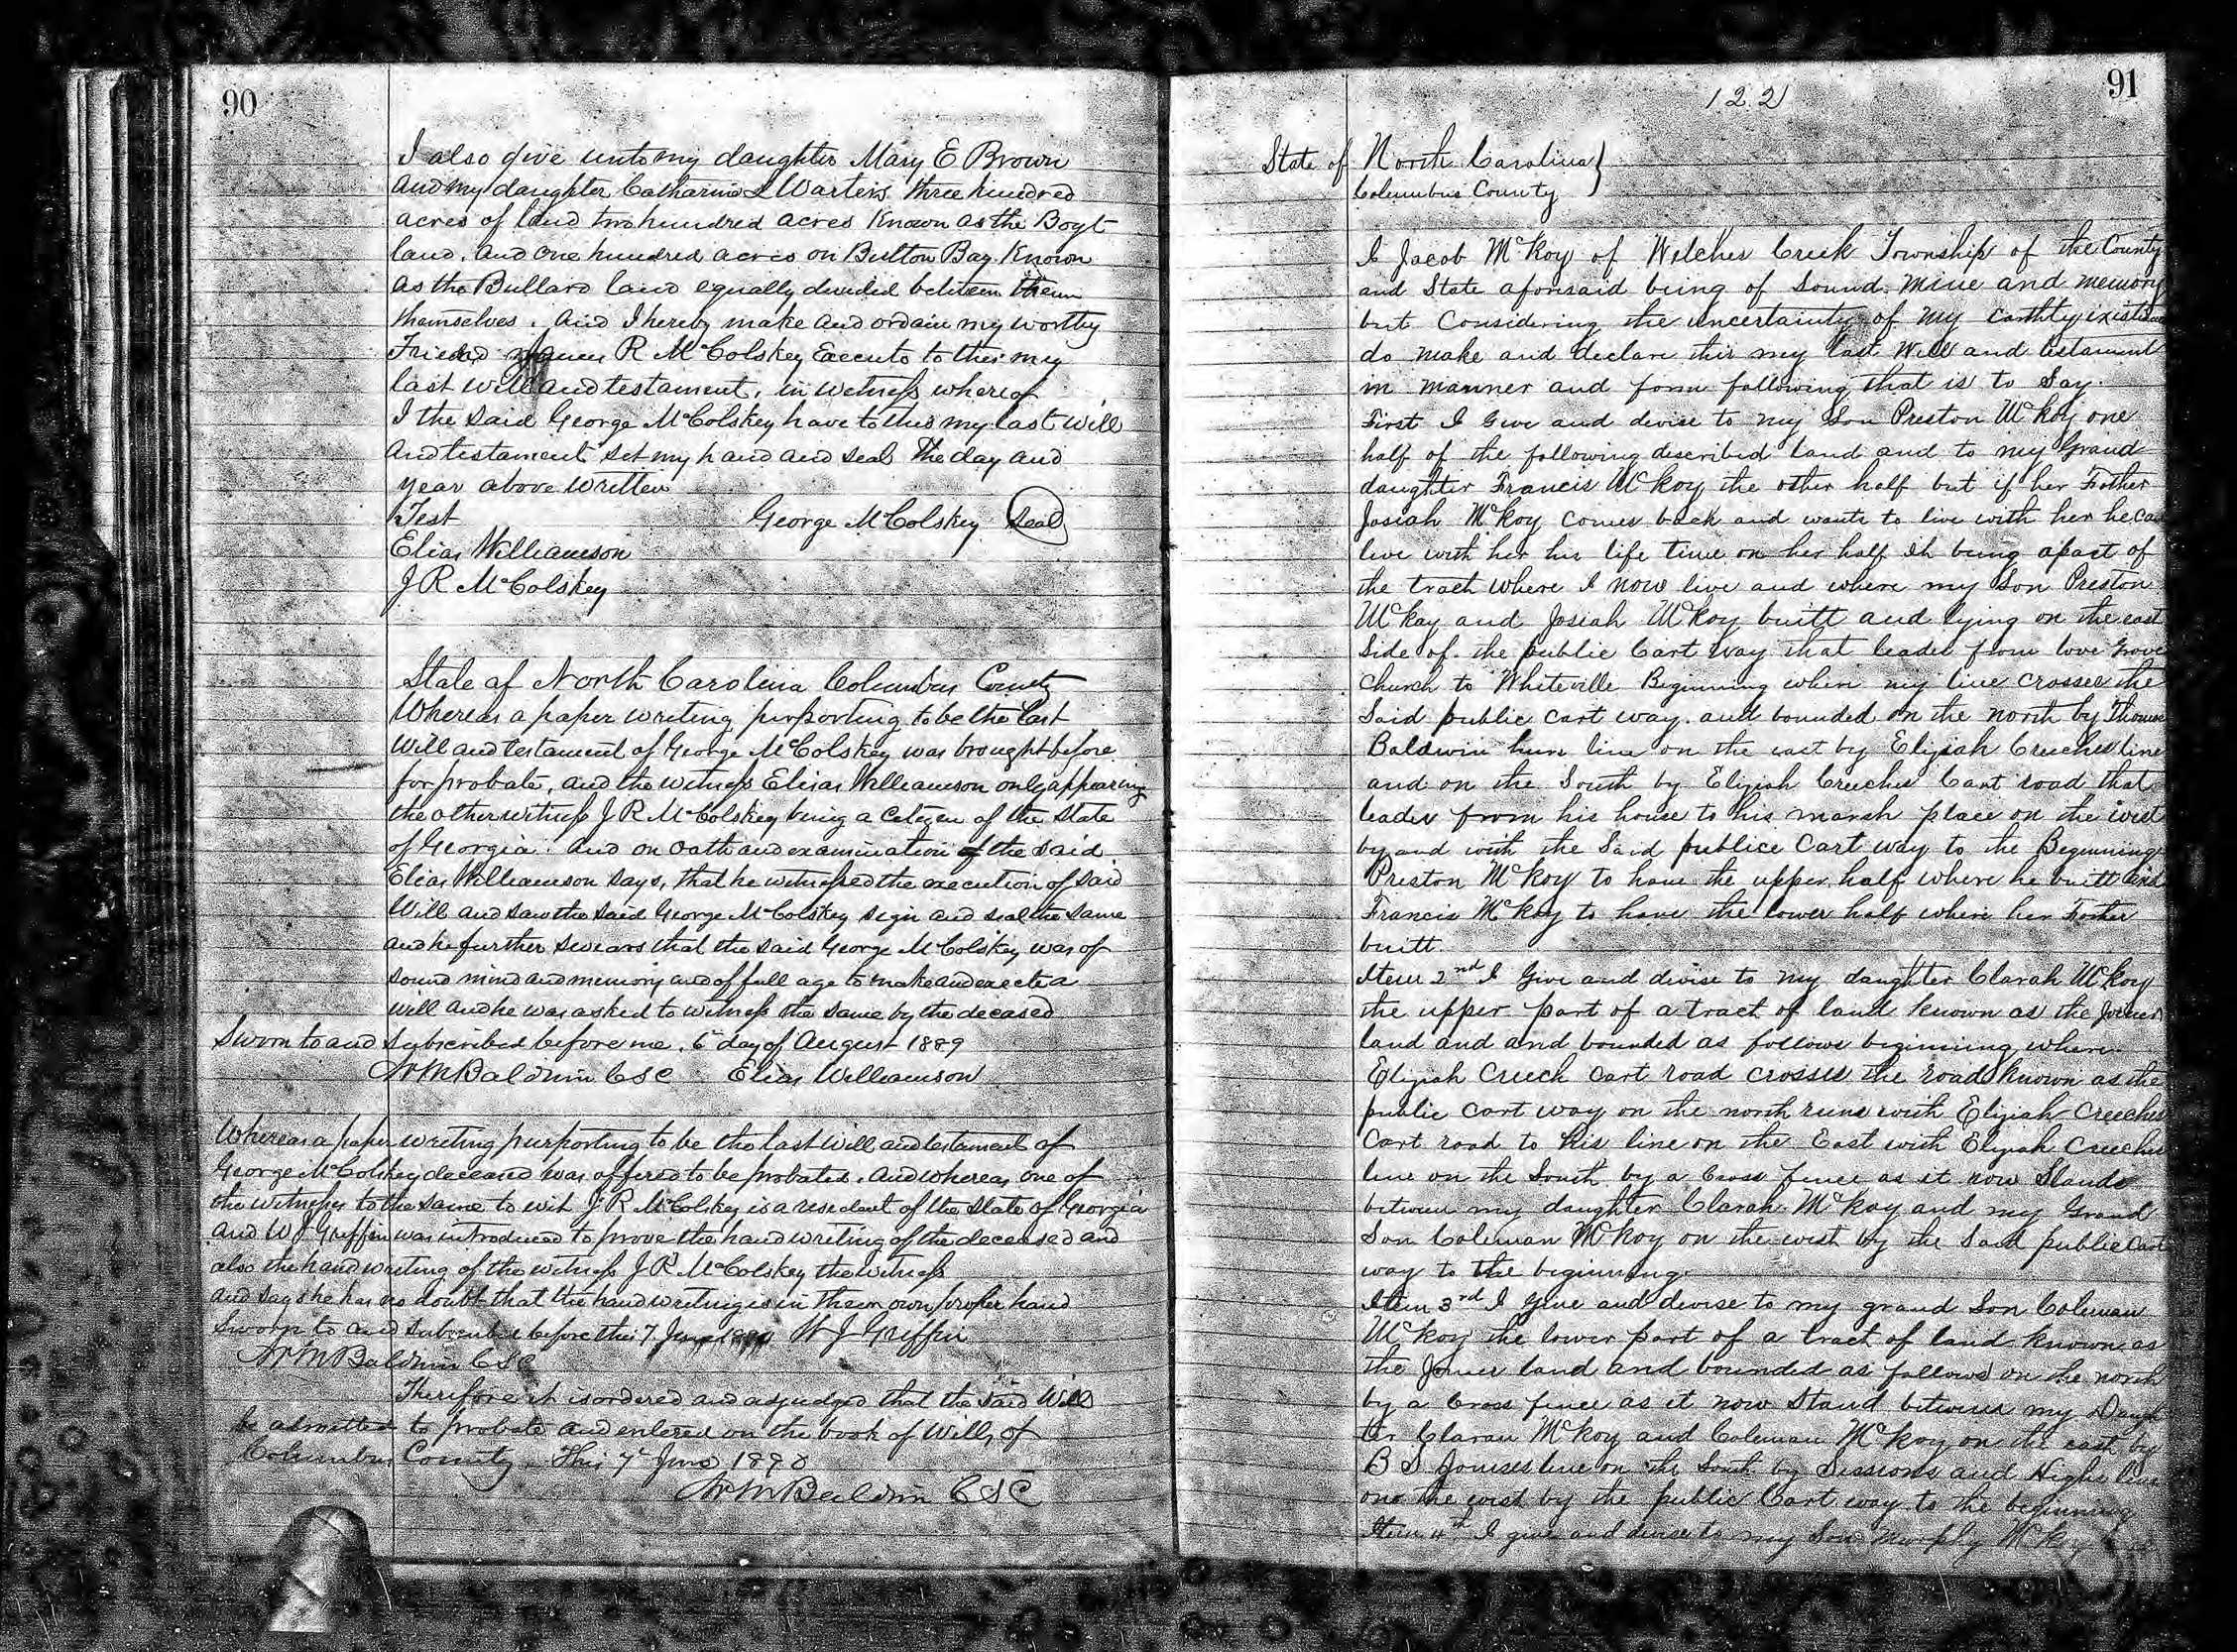 90
I also give unto my daughter Mary E Brown
and my daughter Catharine L Warters three hundred
acres of land two hundred acres Known as the Boyt
land, and one hundred acres on Bulton Bay Known
as the Bullard land equally devided between them
themselves. and I hereby make and ordain my worthy
Friend James R McColskey Executo to this my
last will and testament, in witness whereof
I the said George McColskey have to this my last will
and testament set my hand and seal The day and
year above written
Test George McColskey Seal
Elias Williamson
J R McColskey
State of North Carolina Columbus County
Whereas a paper writing purporting to be the last
Will and testament of George McColskey was brought before
for probate, and the witness Elias Williamson only appearing
the other witness J R McColskey being a Citizen of the State
of Georgia. and on oath and examination of the said
Elias Williamson says, that he witnessed the execution of said
Will and saw the said George McColskey sign and seal the same
and he further swears that the said George McColskey was of
sound mind and memory and of full age to make and execute a
will and he was asked to witness the same by the deceased
Sworn to and subscribed before me. 6 day of August 1889
W M Baldwin CSC Elias Williamson
Whereas a paper writing purporting to be the last will and testament of
George McColskey deceased was offered to be probated. and whereas one of
the witnesses to the same to wit J R McColskey is a resident of the State of Georgia
and W J Griffin was introduced to prove the hand writing of the deceased and
also the hand writing of the witness J R McColskey the witness
and says he has no doubt that the hand writing is in them own proper hand
Sworn to and subscribed before this 7 June 1890 W J Griffin
W M Baldwin CSC
Therefore it is ordered and adjudged that the said Will
be admitted to probate and entered on the book of Wills of
Columbus County. This 7 June 1890
W M Baldwin CSC
91
122
State of North Carolina }
Columbus County
I Jacob McKoy of Welches Creek Township of the County
and State aforesaid being of Sound mine and memory
but Considering the uncertainty of my earthly
do make and declare this my last Will and testament
in manner and form following that is to Say.
First I Give and devise to my Son Preston McKoy one
half of the following described land and to my Grand
daughter Francis McKoy the other half but if her Father
Josiah McKoy comes back and wants to live with her he can
live with her his life time on her half it being apart of
the tract where I now live and where my Son Preston
McKay and Josiah McKoy built and lying on the east
Side of the public Cart way that leades from love Grove
Church to Whiteville Beginning where my line crosses the
Said public cart way. and bounded on the north by Thomas
Baldwin line on the east by Elijah Creeches line
and on the South by Elijah Creeches Cart road that
leades from his house to his marsh place on the west
by and with the Said publice Cart way to the Beginning
Preston McKoy to have the upper half where he built and
Francis McKoy to have the lower half where her Father
built.
Item 2nd I Give and divise to my daughter Clarah McKoy
the upper part of a tract of land known as the Joiner
land and and bounded as follows beginning where
Elijah Creech Cart road crosses the road known as the
public cart way on the north runs with Elijah Creeches
Cart road to his line on the East with Elijah Creeches
line on the South by a Cross fence as it now Stands
between my daughter Clarah McKay and my Grand
Son Coleman McKoy on the west by the Said public Cart
way to the beginning.
Item 3rd I give and devise to my grand Son Coleman
McKoy the lower part of a tract of land known as
the Joiner land and bounded as follows on the north
by a Cross fence as it now Stand between my Daugh
ter Clarah McKoy and Coleman McKoy on the east by
B S line on the South by Sessions and Highs line
one the west by the public Cart way to the beginning
Item 4th I give and devise to my Son Murphy McKoy